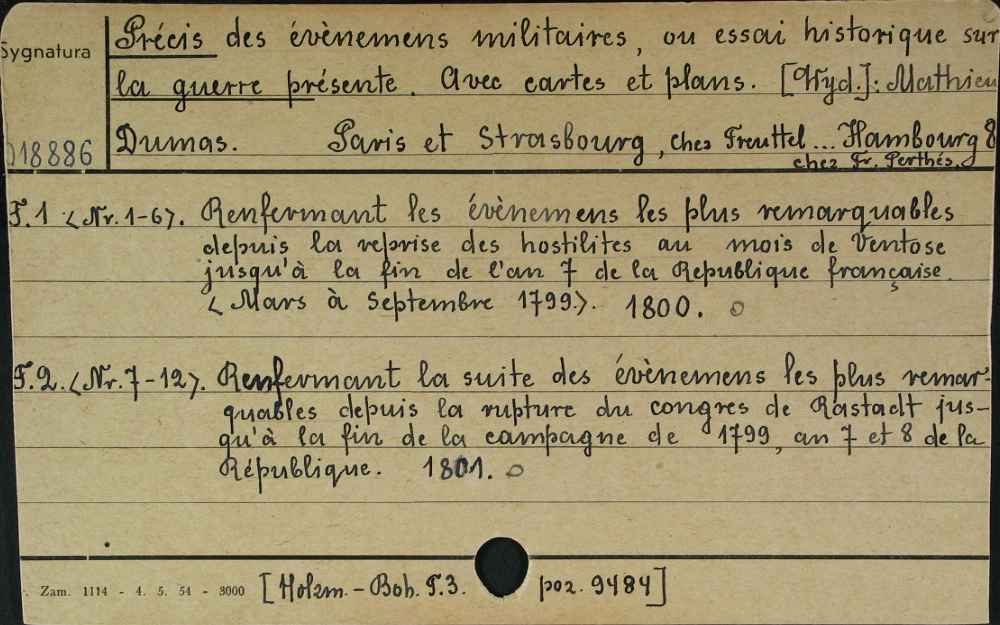 Sygnatura
Précis des évènemens militaires, ou essai historique sur
la guerre présente. Avec cartes et plans. [Wyd.]: Mathieu
018886
Dumas. Paris et Strasbourg, chez Treuttel... Hambourg
chez Fr. Perthés.
T.1 <Nr. 1-6>. Renfermant les évènemens les plus remarquables
depuis la reprise des hostilites au mois de Ventose
jusqu'à la fin de l'an 7 de la Republique française
<Mars à Septembre 1799>. 1800. o
T.2. <Nr. 7-12>. Renfermant la suite des évènemens les plus remar-
quables depuis la rupture du congres de Rastadt jus-
qu'à la fin de la campagne de 1799, an 7 et 8 de la
République. 1801. o
Zam. 1114 - 4. 5. 54 - 3000 [Holzm. - Boh. T.3. poz. 9484]